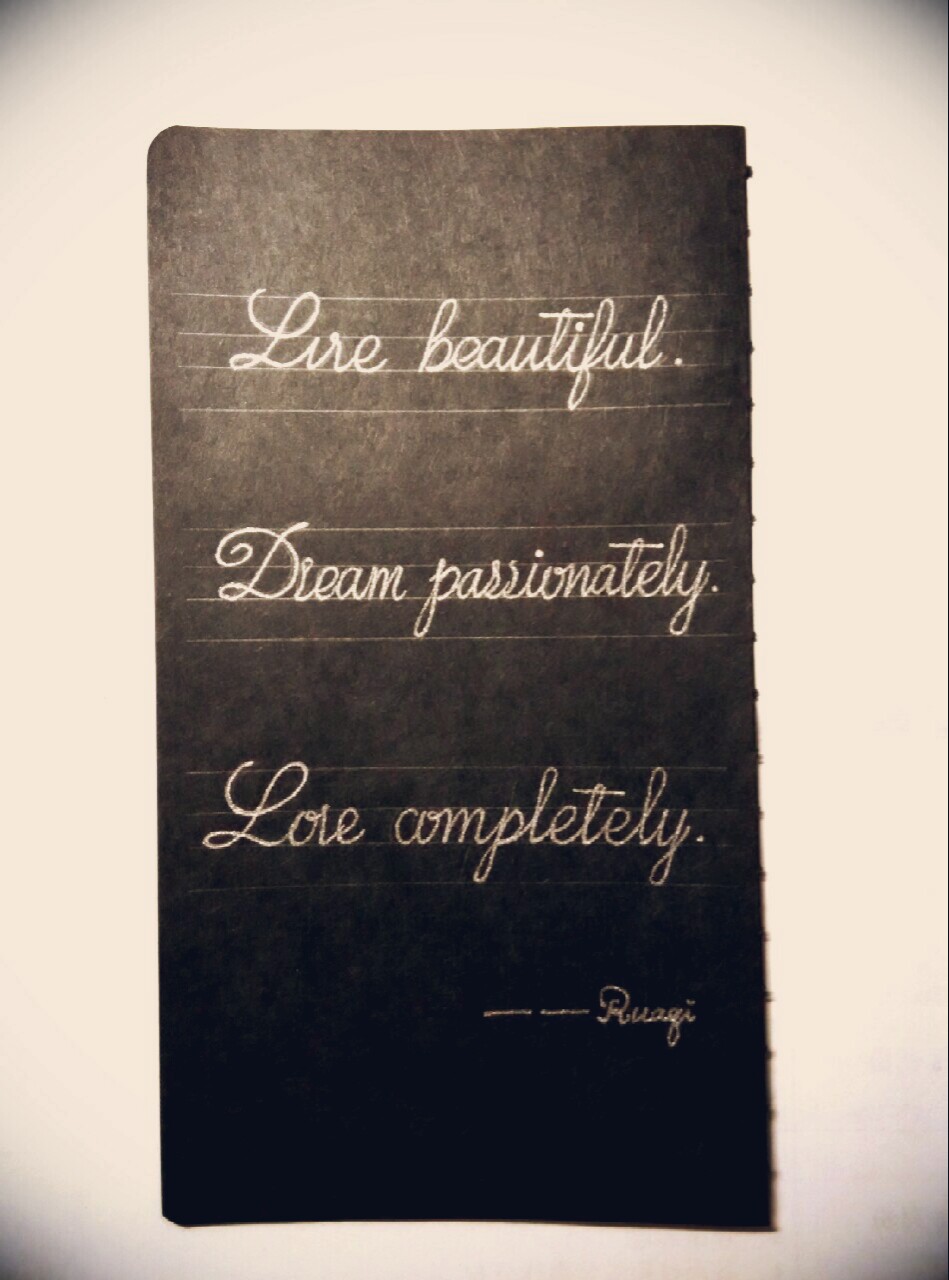 Live beautiful.
Dream passionately.
Love completely.
—— Ruagi